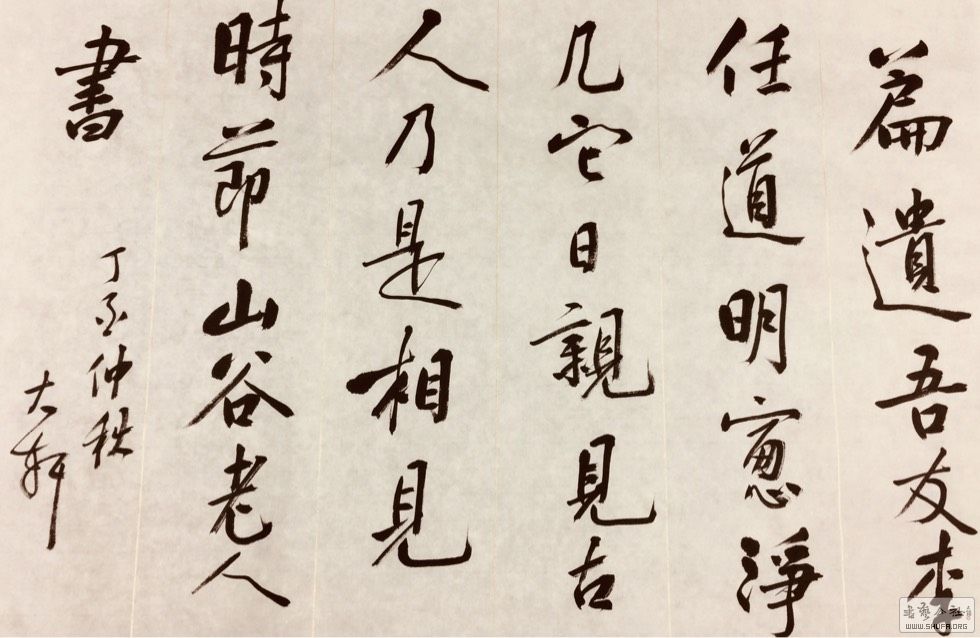 篇遺吾友李
任道明窻淨
几它日親見古
人乃是相見
時節山谷老人
書
丁酉仲秋
大軒
WWW.SHUFA.ORG